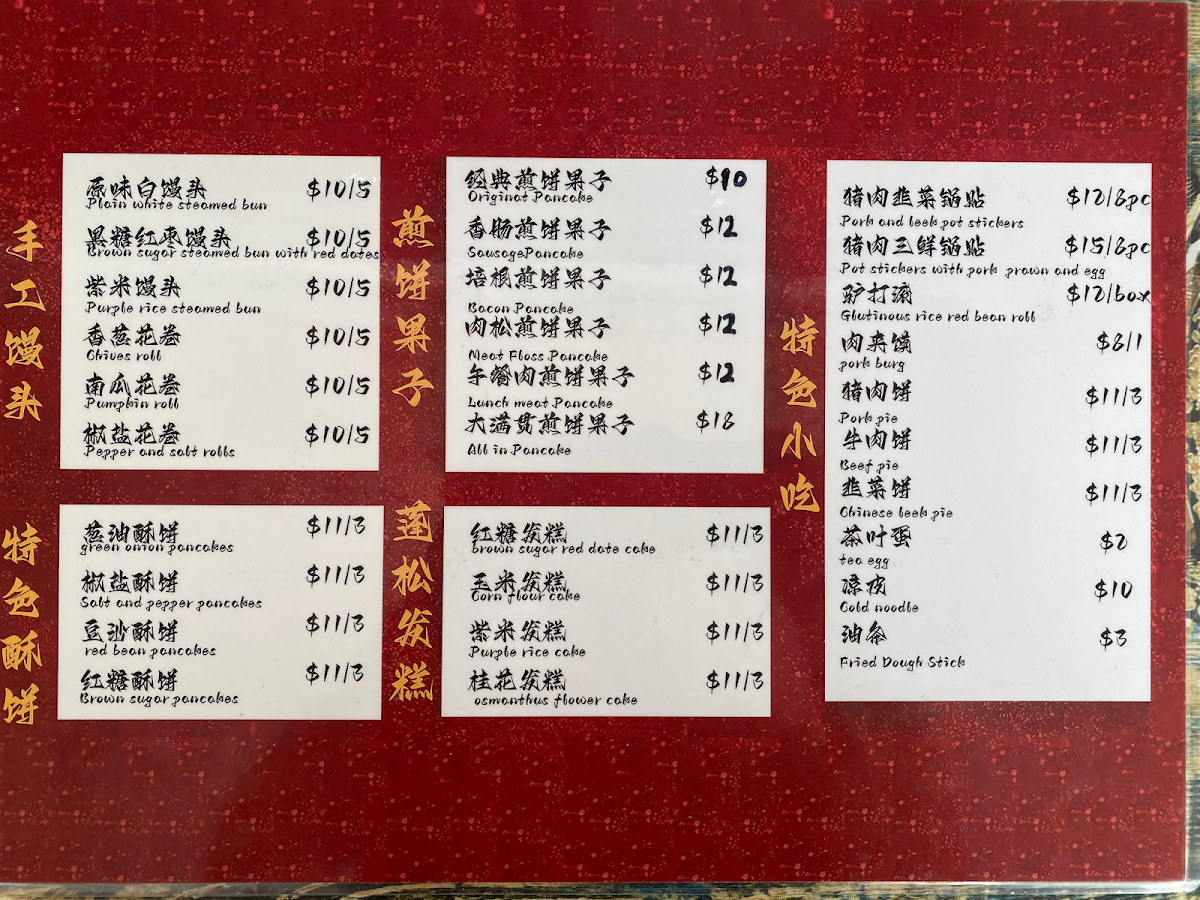 手工馒头
原味白馒头 $10/5
Plain white steamed bun
黑糖红枣馒头 $10/5
Brown sugar steamed bun with red dates
紫米馒头 $10/5
Purple rice steamed bun
香葱花卷 $10/5
Chives roll
南瓜花卷 $10/5
Pumpkin roll
椒盐花卷 $10/5
Pepper and salt rolls
特色酥饼
葱油酥饼 $11/3
green onion pancakes
椒盐酥饼 $11/3
Salt and pepper pancakes
豆沙酥饼 $11/3
red bean pancakes
红糖酥饼 $11/3
Brown sugar pancakes
煎饼果子
经典煎饼果子 $10
Original Pancake
香肠煎饼果子 $12
SausagePancake
培根煎饼果子 $12
Bacon Pancake
肉松煎饼果子 $12
Meat Floss Pancake
午餐肉煎饼果子 $12
Lunch meat Pancake
大满贯煎饼果子 $18
All in Pancake
蓬松发糕
红糖发糕 $11/3
brown sugar red date cake
玉米发糕 $11/3
Corn flour cake
紫米发糕 $11/3
Purple rice cake
桂花发糕 $11/3
osmanthus flower cake
特色小吃
猪肉韭菜锅贴 $12/8pc
Pork and leek pot stickers
猪肉三鲜锅贴 $15/8pc
Pot stickers with pork prawn and egg
驴打滚 $12/box
Glutinous rice red bean roll
肉夹馍 $8/1
pork burg
猪肉饼 $11/3
Pork pie
牛肉饼 $11/3
Beef pie
韭菜饼 $11/3
Chinese leek pie
茶叶蛋 $2
tea egg
凉皮 $10
Cold noodle
油条 $3
Fried Dough Stick